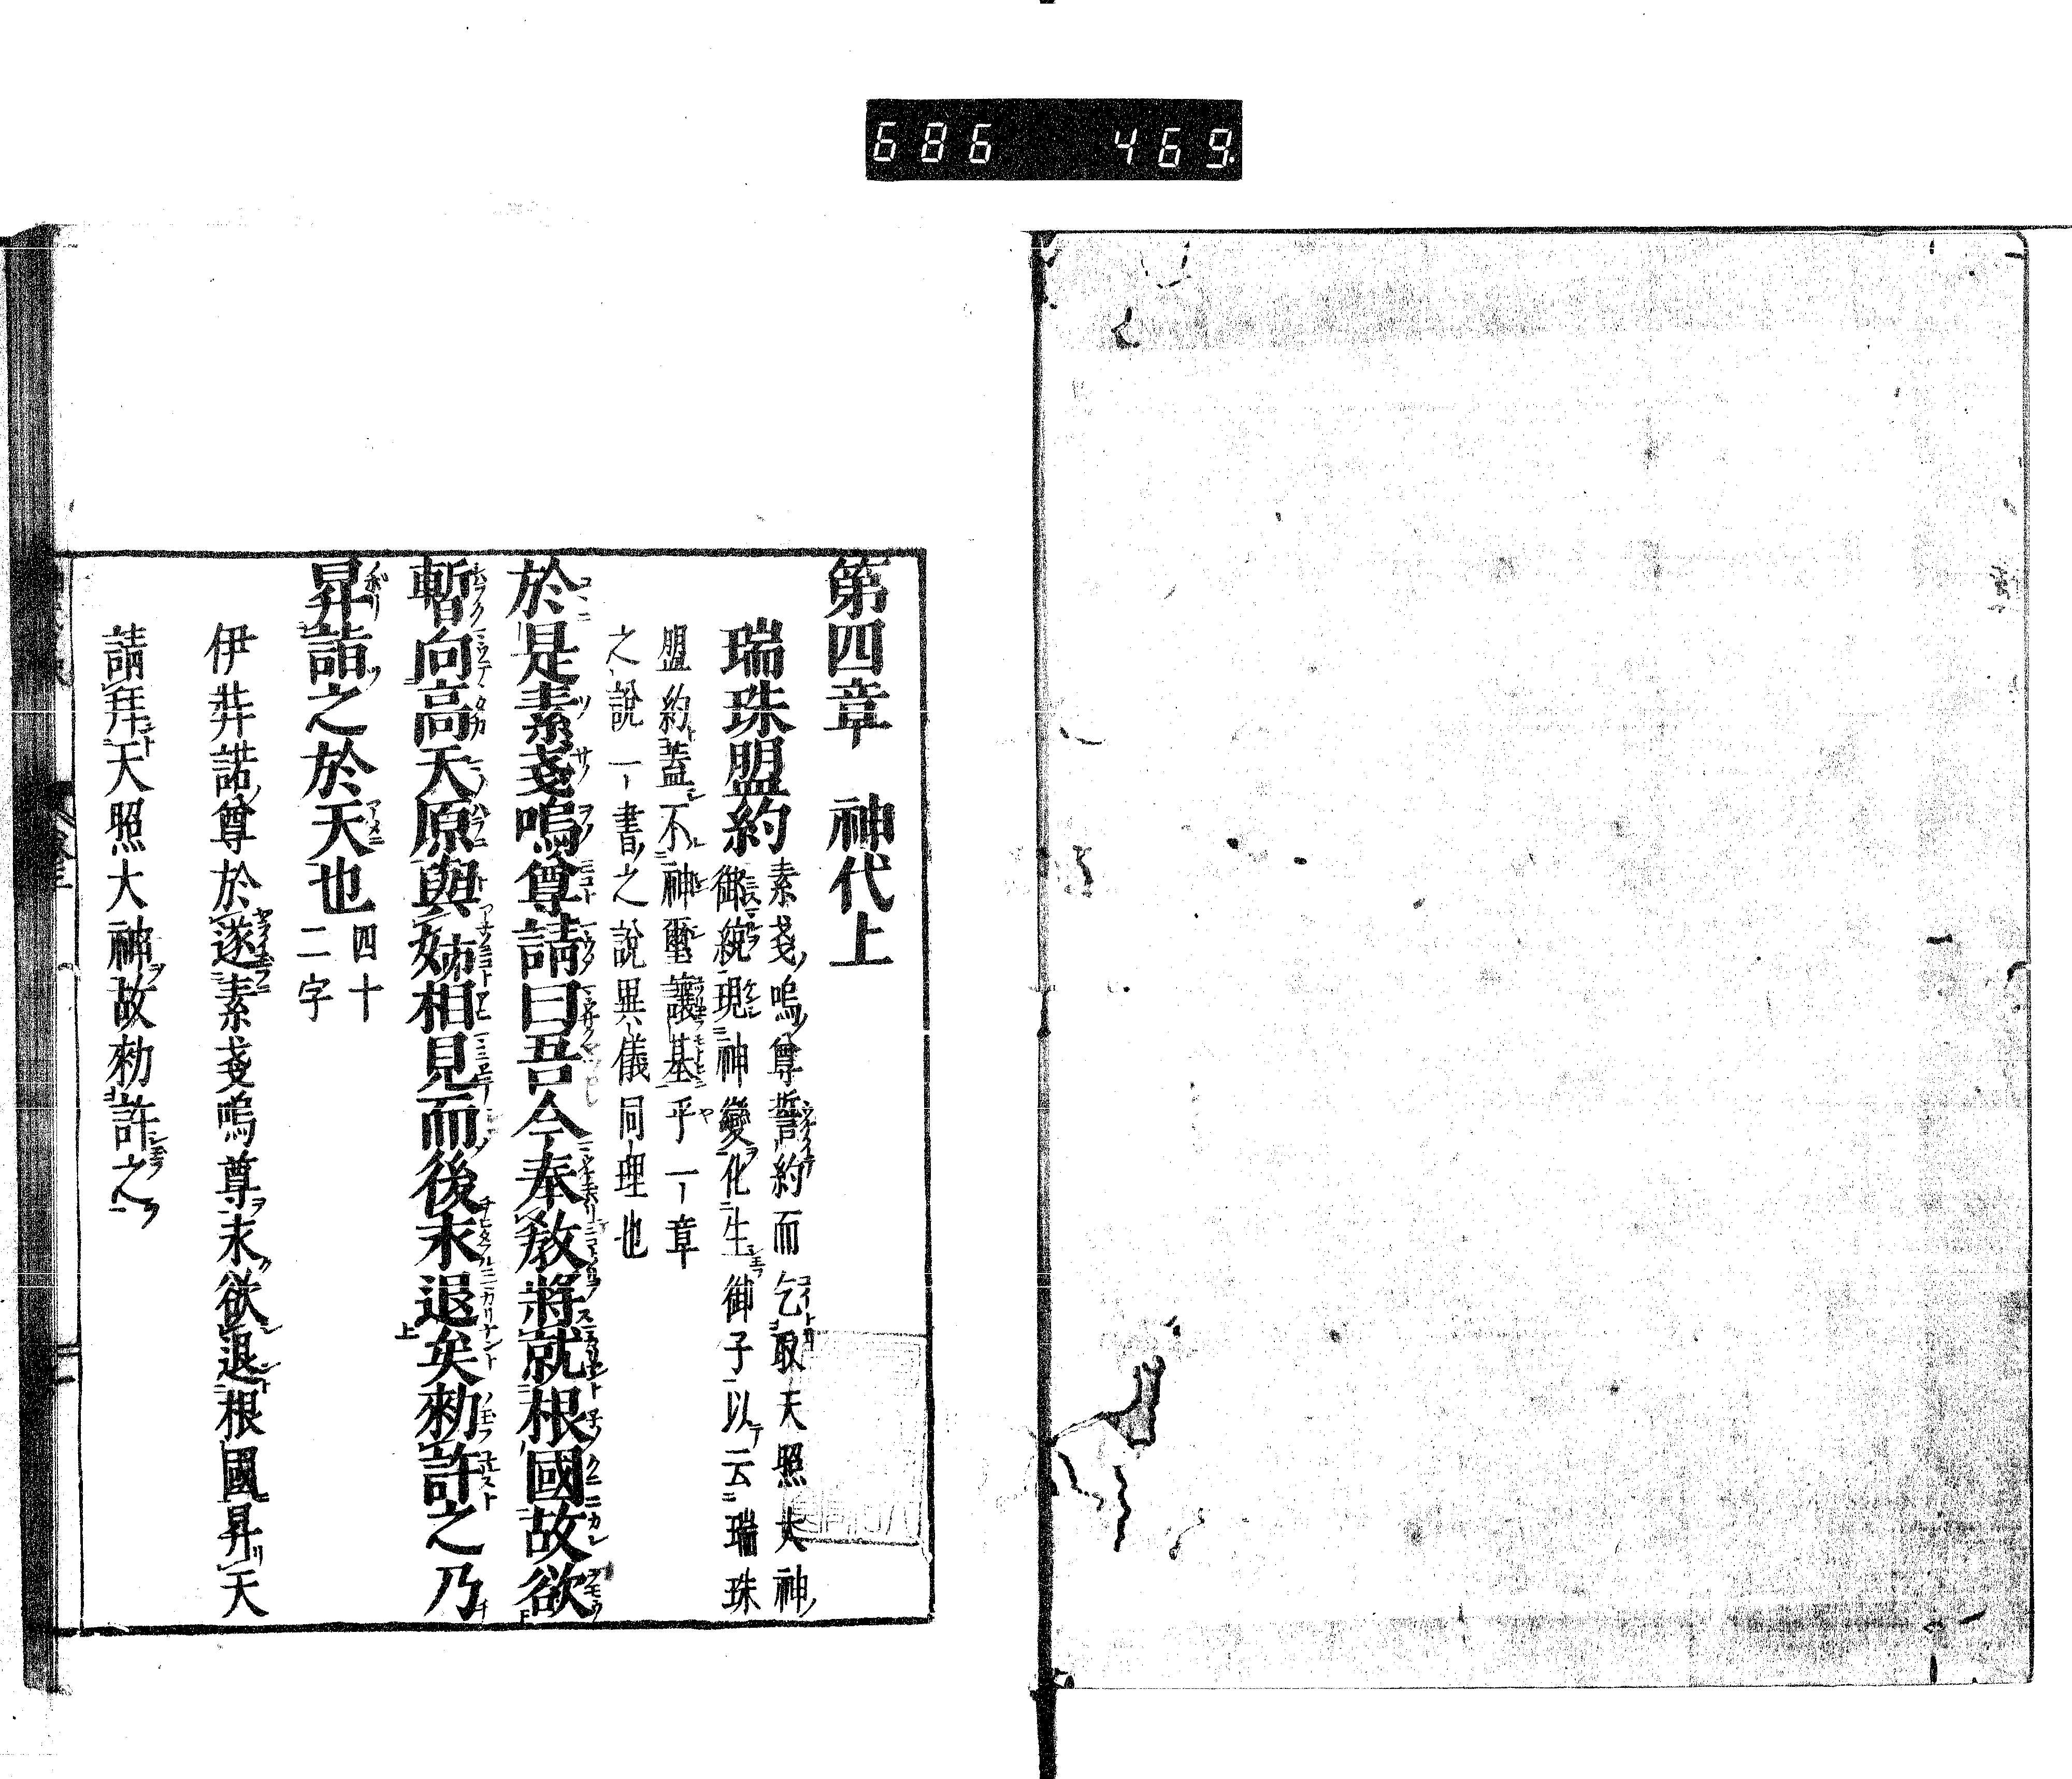 686 469
第四章　神代上
瑞珠盟約
素戔嗚尊誓約而乞取天照大神
御統現神變化生御子以云瑞珠
盟約蓋不神璽讓基乎一章
之說一書之說異儀同理也
於是素戔嗚尊請曰吾今奉敎將就根國故欲
暫向高天原與姉相見而後永退矣勑許之乃
昇詣之於天也
四十
二字
伊弉諾尊於遂素戔嗚尊永欲退根國昇天
請拜天照大神故勑許之